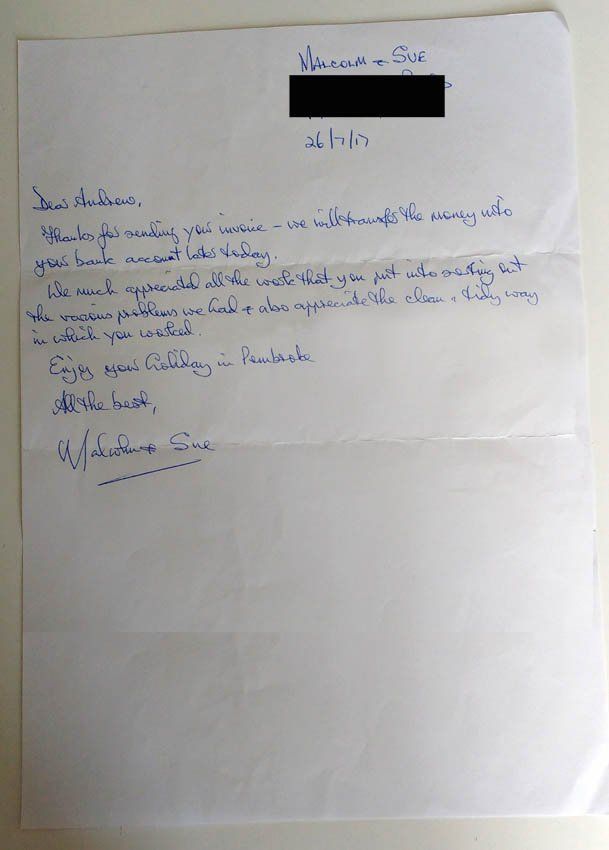 MALCOLM & SUE
26/7/17
Dear Andrew,
Thanks for sending your invoice – we will transfer the money into
your bank account later today.
We much appreciated all the work that you put into sorting out
the various problems we had & also appreciate the clean & tidy way
in which you worked.
Enjoy your holiday in Pembroke
All the best,
Malcolm & Sue